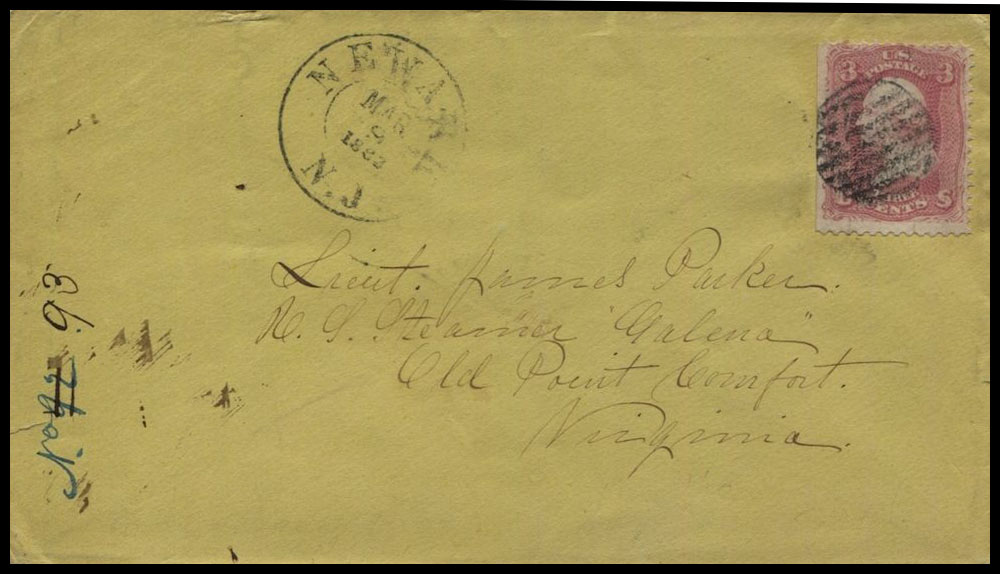 NEWARK N.J.
MAR
9
1862
U.S.
POSTAGE
3 3
CENTS
Lieut. James Parker.
U. S. Steamer "Galena"
Old Point Comfort.
Virginia.
No 92 93